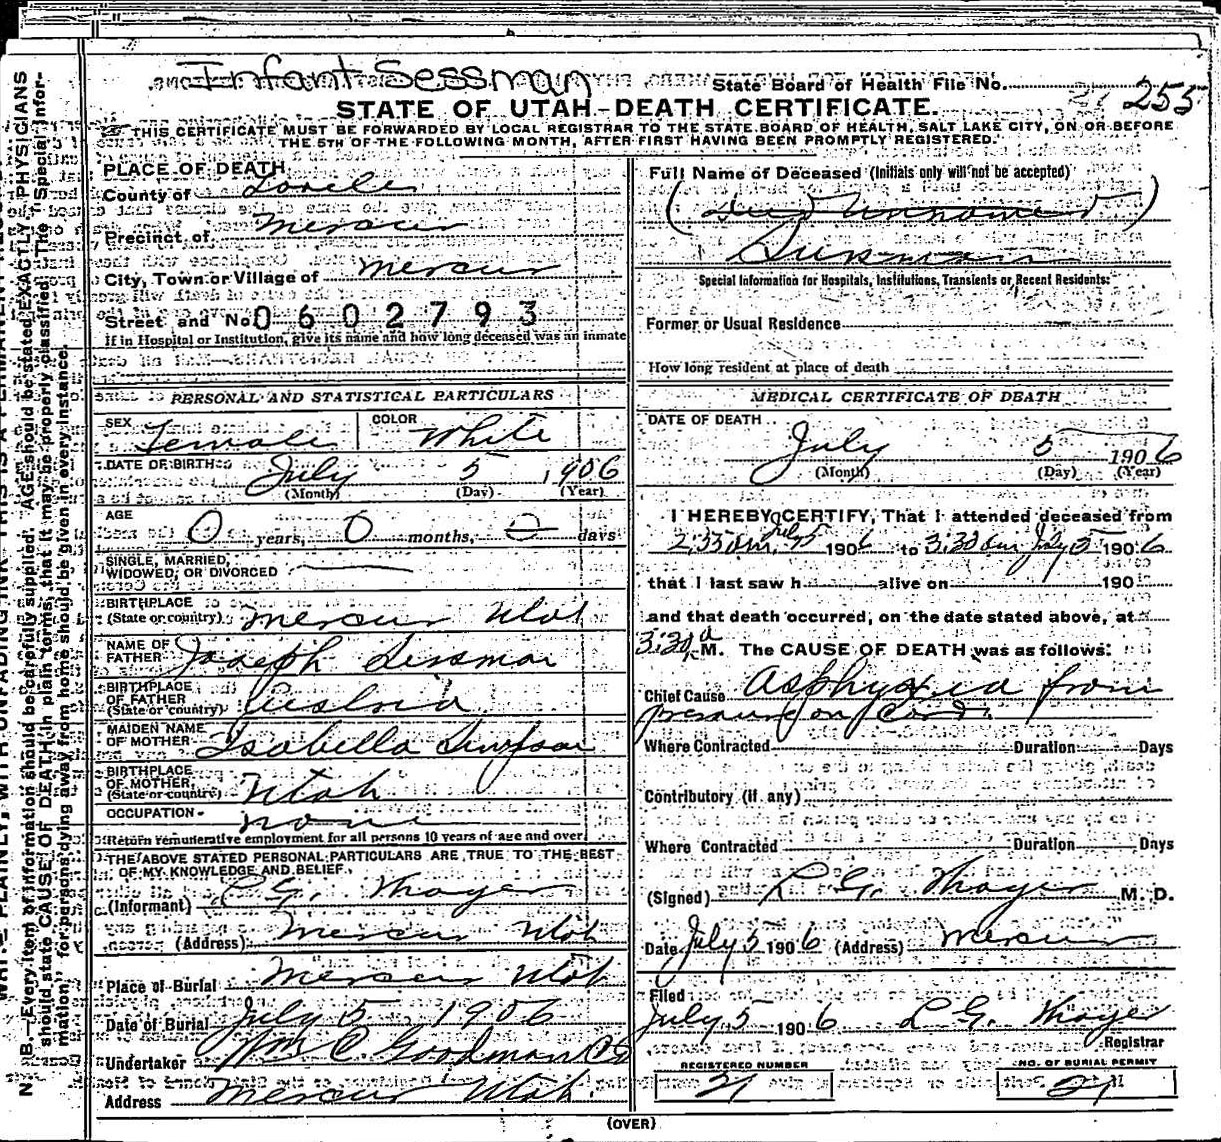 Infant Sessman
State Board of Health File No. 255
STATE OF UTAH-DEATH CERTIFICATE.
THIS CERTIFICATE MUST BE FORWARDED BY LOCAL REGISTRAR TO THE STATE BOARD OF HEALTH, SALT LAKE CITY, ON OR BEFORE
THE 5TH OF THE FOLLOWING MONTH, AFTER FIRST HAVING BEEN PROMPTLY REGISTERED.
PLACE OF DEATH
County of
Precinct of Mercur
City, Town or Village of Mercur
Street and No. 0602793
If in Hospital or Institution, give its name and how long deceased was an inmate
PERSONAL AND STATISTICAL PARTICULARS
SEX Female COLOR White
DATE OF BIRTH July 5, 1906
(Month) (Day) (Year)
AGE 0 years, 0 months, 0 days
SINGLE, MARRIED,
WIDOWED, OR DIVORCED
BIRTHPLACE
(State or country) Mercur Utah
NAME OF
FATHER Joseph
BIRTHPLACE
OF FATHER
(State or country) Austria
MAIDEN NAME
OF MOTHER Isabella
BIRTHPLACE
OF MOTHER,
(State or country) Utah
OCCUPATION - none
Return remunerative employment for all persons 10 years of age and over
THE ABOVE STATED PERSONAL PARTICULARS ARE TRUE TO THE BEST
OF MY KNOWLEDGE AND BELIEF.
(Informant) L. G. Thayer
(Address) Mercur Utah
Place of Burial Mercur Utah
Date of Burial July 5 1906
Undertaker Wm C. Goodman
Address Mercur Utah.
Full Name of Deceased (Initials only will not be accepted)
( Unnamed )
Special Information for Hospitals, Institutions, Transients or Recent Residents:
Former or Usual Residence
How long resident at place of death
MEDICAL CERTIFICATE OF DEATH
DATE OF DEATH
July 5 1906
(Month) (Day) (Year)
I HEREBY CERTIFY, That I attended deceased from
2:35 am, July 5 1906 to 3:30 am July 5 1906
that I last saw h alive on 190
and that death occurred, on the date stated above, at
3:30 a M. The CAUSE OF DEATH was as follows:
Chief Cause Asphyxia from
pressure on Cord.
Where Contracted Duration Days
Contributory (if any)
Where Contracted Duration Days
(Signed) L. G. Thayer M. D.
Date July 5 1906 (Address) Mercur
Filed
July 5 1906 L. G. Thayer
Registrar
REGISTERED NUMBER NO. OF BURIAL PERMIT
21 21
(OVER)
N. B.—Every item of information should be carefully supplied. AGE should be stated EXACTLY. PHYSICIANS
should state CAUSE OF DEATH in plain terms, that it may be properly classified. The "Special Infor-
mation" for persons dying away from home should be given in every instance.